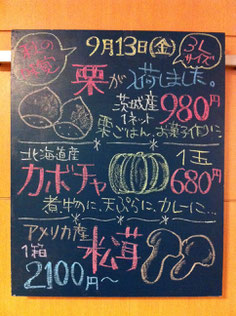 秋の味覚
9月13日(金)
3Lサイズ
栗が入荷しました。
茨城産
1ネット
980円
栗ごはん、お菓子作りに。
北海道産
カボチャ
1玉
680円
煮物に、天ぷらに、カレーに…
アメリカ産
1箱
松茸
2100円〜